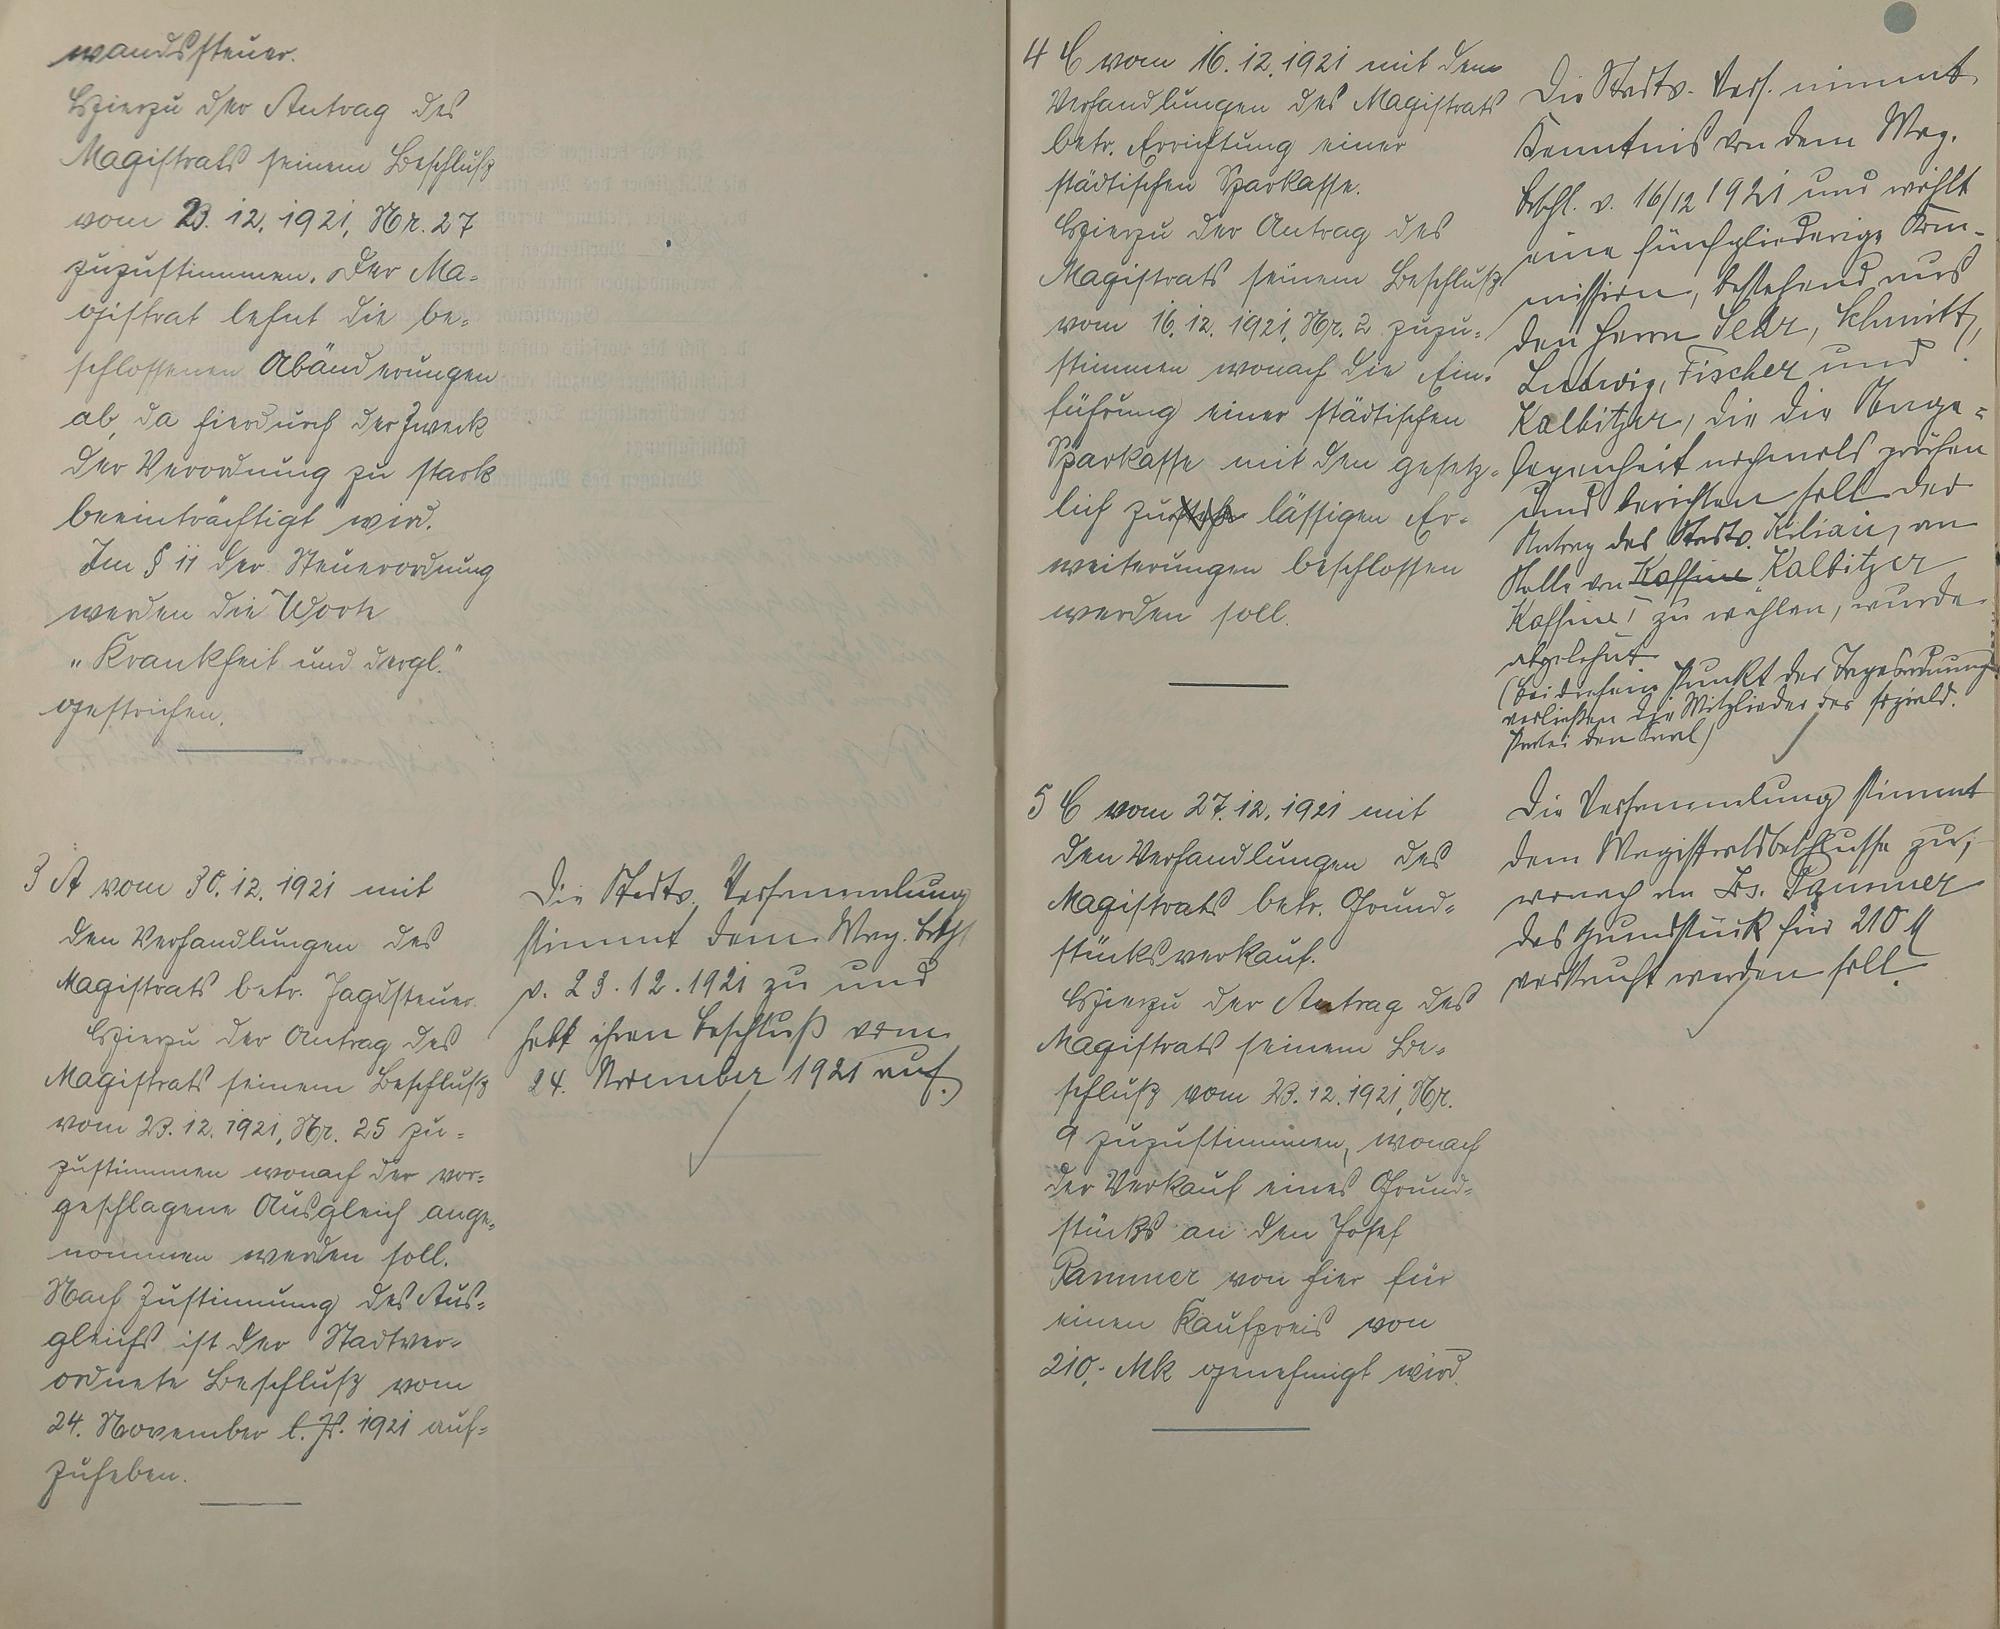 wandssteuer.
Hierzu der Antrag des
Magistrats seinem Beschluß
vom 23.12.1921, Nr. 27
zuzustimmen. Der Ma-
gistrat lehnt die be-
schlossenen Abänderungen
ab, da hierdurch der Zweck
der Verordnung zu stark
beeinträchtigt wird.
Im § 11 der Steuerordnung
werden die Worte
„Krankheit und dergl."
gestrichen.
3 A vom 30.12.1921 mit
den Verhandlungen des
Magistrats betr. Jagdsteuer.
Hierzu der Antrag des
Magistrats seinem Beschluß
vom 23.12.1921, Nr. 25 zu-
zustimmen wonach der vor-
geschlagene Ausgleich ange-
nommen werden soll.
Nach Zustimmung des Aus-
gleichs ist der Stadtver-
ordnete Beschluß vom
24. November l. Js. 1921 auf-
zuheben.
Die Stadtv. Versammlung
stimmt dem Mag. Beschl.
v. 23.12.1921 zu und
hebt ihren Beschluß vom
24. November 1921 auf.
4 C vom 16.12.1921 mit den
Verhandlungen des Magistrats
betr. Errichtung einer
städtischen Sparkasse.
Hierzu der Antrag des
Magistrats seinem Beschluß
vom 16.12.1921, Nr. 2 zuzu-
stimmen wonach die Ein-
führung einer städtischen
Sparkasse mit den gesetz-
lich zu lässigen Er-
weiterungen beschlossen
werden soll.
Die Stadtv. Vers. nimmt
Kenntnis von dem Mag.
Beschl. v. 16/12 1921 und wählt
eine fünfgliederige Kom-
mission, bestehend aus
den Herrn Sehr, Schmitt,
Ludwig, Fischer und
Kalbitzer, die die Ange-
legenheit nochmals prüfen
und berichten soll. Der
Antrag des Stadtv. Kilian, an
Stelle von Kalbitzer
zu wählen, wurde
abgelehnt.
(Bei diesem Punkt der Tagesordnung
verließen die Mitglieder der soziald.
Partei den Saal)
5 C vom 27.12.1921 mit
den Verhandlungen des
Magistrats betr. Grund-
stücksverkauf.
Hierzu der Antrag des
Magistrats seinem Be-
schluß vom 23.12.1921, Nr.
9 zuzustimmen, wonach
der Verkauf eines Grund-
stücks an den Josef
Pammer von hier für
einen Kaufpreis von
210,- Mk genehmigt wird.
Die Versammlung stimmt
dem Magistratsbeschlusse zu,
wonach an Jos. Pammer
das Grundstück für 210 M
verkauft werden soll.